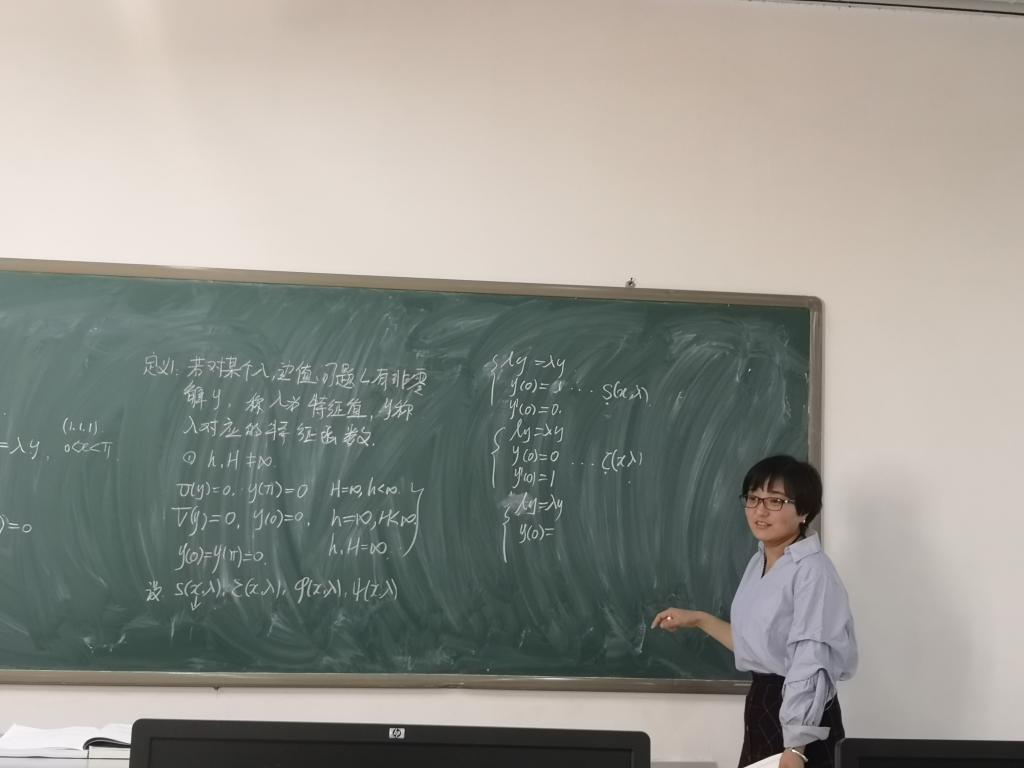 =λy,
(1.1.1)
0<x<π.
)=0
定义1. 若对某个λ, 边值问题L有非零
解y, 称λ为特征值, y称
λ对应的特征函数.
① h, H ≠ ∞.
U(y)=0, y(π)=0 H=∞, h<∞.
V(y)=0, y(0)=0, h=∞, H<∞.
y(0)=y(π)=0. h, H=∞.
设 S(x,λ), C(x,λ), φ(x,λ), ψ(x,λ)
ly=λy
y(0)= ... S(x,λ)
y'(0)=0.
ly=λy
y(0)=0 ... C(x,λ)
y'(0)=1
ly=λy
y(0)=
hp